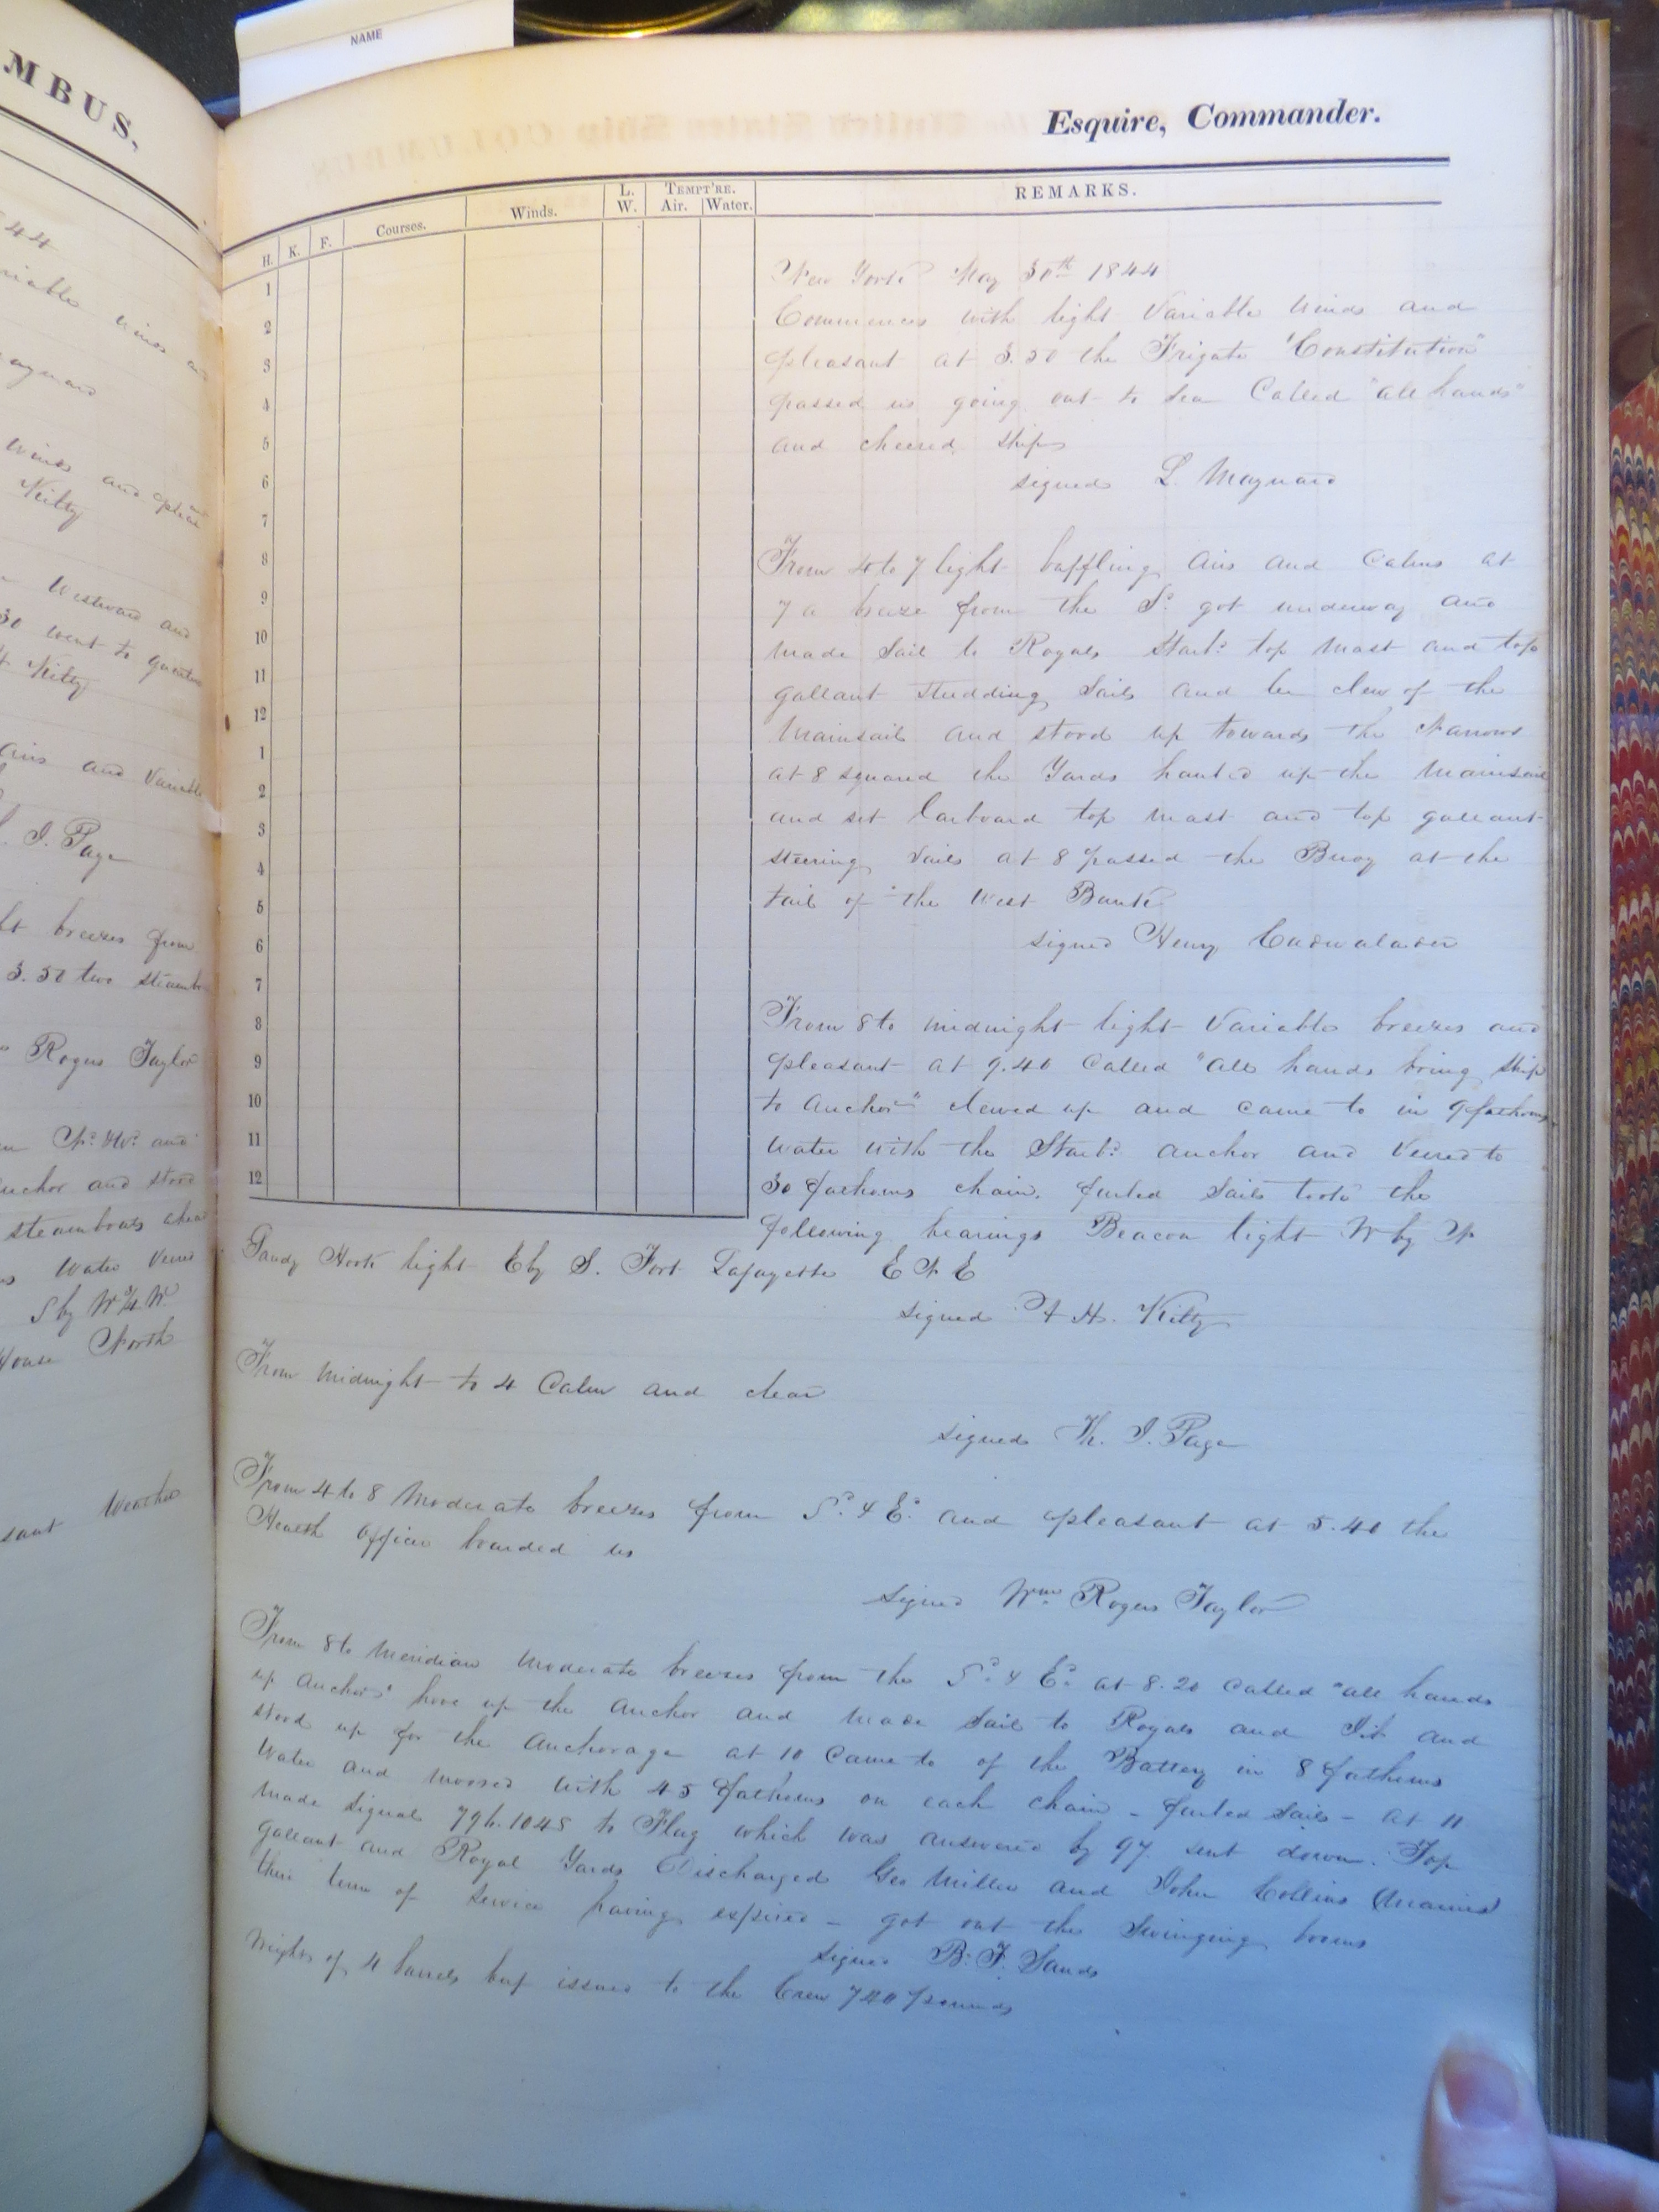 NAME
MBUS,
44
riable winds and
aynard
winds and pleas
Kilty
Westward and
30 went to quarters
Kilty
airs and Variable
I. Page
breezes from
3.30 two steamb
Rogers Taylor
Nd. Wd. and
anchor and stood
steamboats ahead
water veered
S by W 3/4 W.
House North
sant Weather
Esquire, Commander.
H. K. F. Courses. Winds. L. W. TEMPT'RE. Air. Water. REMARKS.
1
2
3
4
5
6
7
8
9
10
11
12
1
2
3
4
5
6
7
8
9
10
11
12
New York May 30th 1844
Commences with light Variable winds and
pleasant at 3.30 the Frigate "Constitution"
passed us going out to sea Called "all hands"
and cheered ship
signed L. Maynard
From 4 to 7 light baffling airs and Calms at
7 a breeze from the Sd. got underway and
made Sail to Royals Starbd. top mast and top
gallant studding Sails and lee clew of the
Mainsail and stood up towards the Narrows
at 8 squared the Yards hauled up the Mainsail
and set larboard top mast and top gallant
steering Sails at 8 passed the Buoy at the
tail of the West Bank
signed Henry Cadwalader
From 8 to midnight light Variable breezes and
pleasant at 9.40 Called "all hands bring ship
to anchor" clewed up and came to in 9 fathoms
water with the Starbd. anchor and Veered to
30 fathoms chain. furled Sails took the
following bearings Beacon light W by N
Sandy Hook light E by S. Fort Lafayette E N E
signed A H. Kilty
From Midnight to 4 Calm and clear
signed Th. J. Page
From 4 to 8 Moderate breezes from Sd. & Ed. and pleasant at 5.40 the
Health Officer boarded us
signed Wm. Rogers Taylor
From 8 to Meridian Moderate breezes from the Sd. & Ed. at 8.20 Called "all hands
up anchor" hove up the anchor and made Sail to Royals and Jib and
stood up for the anchorage at 10 Came to of the Battery in 8 fathoms
Water and moored with 45 fathoms on each chain - furled Sails - at 11
made Signal 796.1045 to Flag which was answered by 97. sent down Top
gallant and Royal Yards Discharged Geo Miller and John Collins (Marines)
their term of Service having expired - got out the Swinging booms
signed B. F. Sands
Weight of 4 barrels beef issued to the Crew 720 pounds